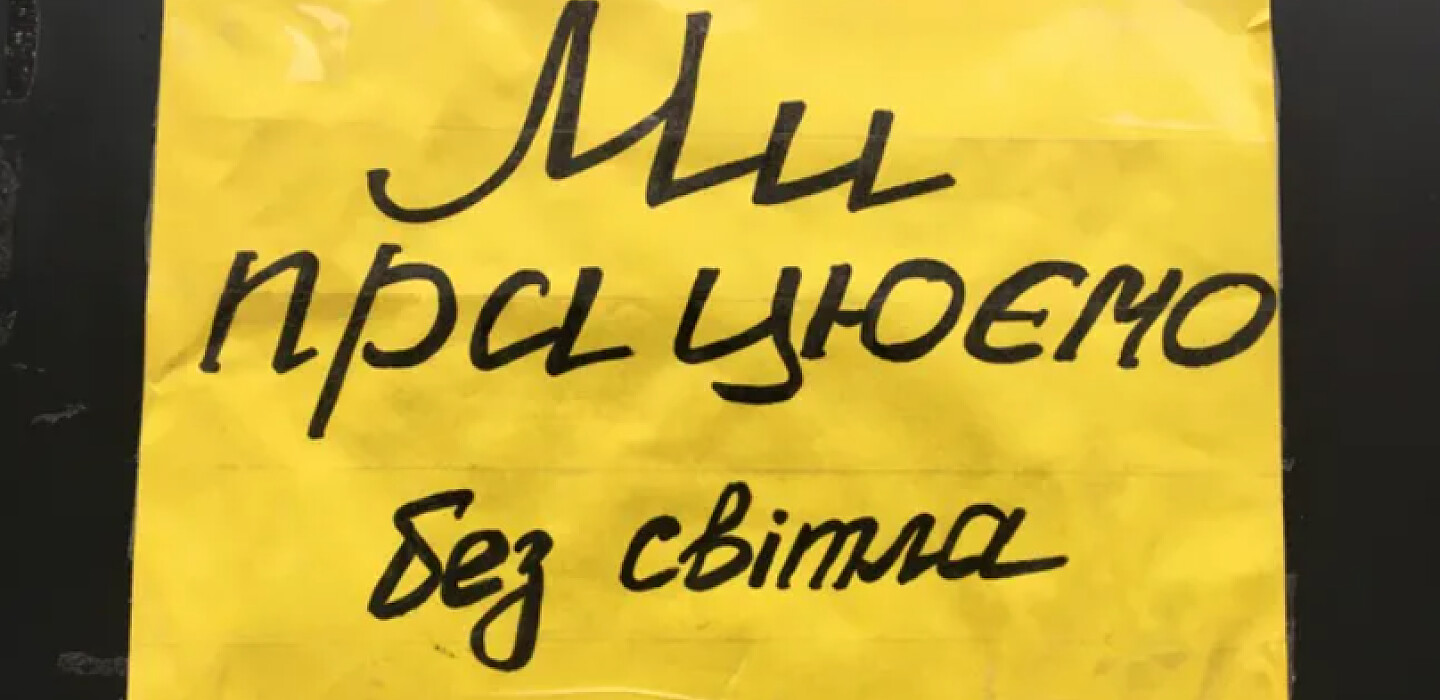 Ми
працюємо
без світла